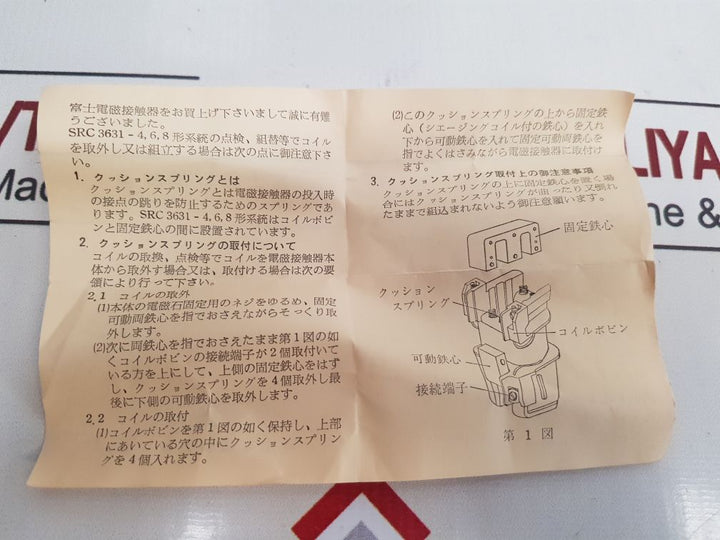 富士電磁接触器をお買上げ下さいまして誠に有難
うございました。
SRC 3631 - 4, 6, 8 形系統の点検、組替等でコイル
を取外し又は組立する場合は次の点に御注意下さ
い。
1. クッションスプリングとは
クッションスプリングとは電磁接触器の投入時
の接点の跳りを防止するためのスプリングであ
ります。SRC 3631 - 4, 6, 8 形系統はコイルボビ
ンと固定鉄心の間に設置されています。
2. クッションスプリングの取付について
コイルの取換、点検等でコイルを電磁接触器本
体から取外す場合又は、取付ける場合は次の要
領により行って下さい。
2.1 コイルの取外
(1)本体の電磁石固定用のネジをゆるめ、固定
可動両鉄心を指でおさえながらそっくり取
外します。
(2)次に両鉄心を指でおさえたまま第1図の如
くコイルボビンの接続端子が2個取付いて
いる方を上にして、上側の固定鉄心をはず
し、クッションスプリングを4個取外し最
後に下側の可動鉄心を取外します。
2.2 コイルの取付
(1)コイルボビンを第1図の如く保持し、上部
にあいている穴の中にクッションスプリン
グを4個入れます。
(2)このクッションスプリングの上から固定鉄
心(シエージングコイル付の鉄心)を入れ
下から可動鉄心を入れて固定可動両鉄心を
指でよくはさみながら電磁接触器に取付け
ます。
3. クッションスプリング取付上の御注意事項
クッションスプリングの上に固定鉄心を置く場
合にはクッションスプリングが曲ったり又倒れ
たままで組込まれないよう御注意願います。
固定鉄心
クッション
スプリング
コイルボビン
可動鉄心
接続端子
第1図
LIYA
Mac
ne &